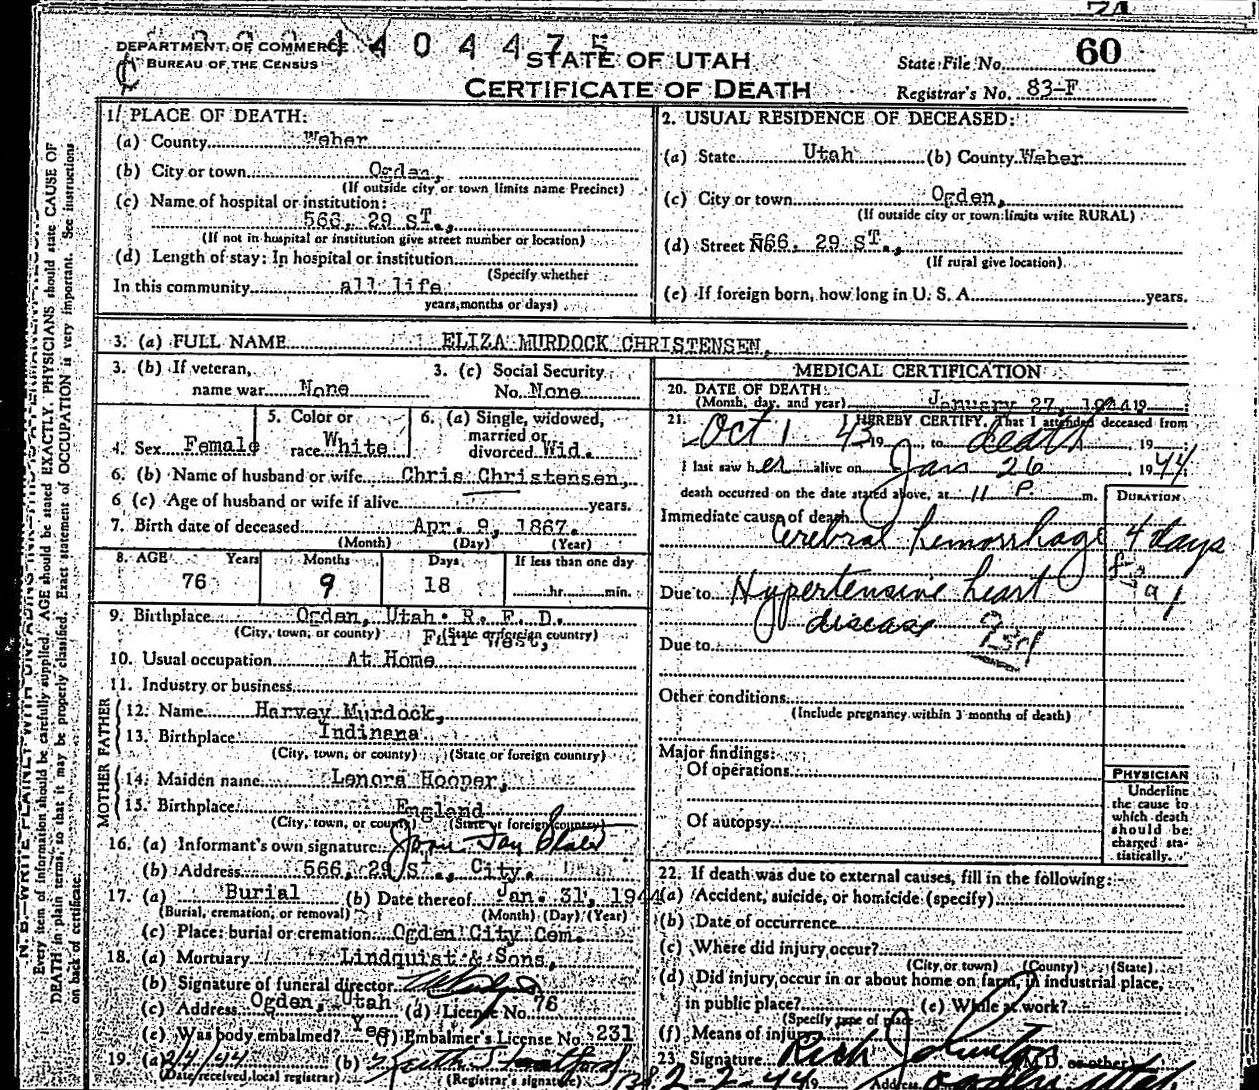 DEPARTMENT OF COMMERCE
BUREAU OF THE CENSUS
STATE OF UTAH
CERTIFICATE OF DEATH
State File No. 60
Registrar's No. 83-F
1. PLACE OF DEATH:
(a) County Weber
(b) City or town Ogden,
(If outside city or town limits name Precinct)
(c) Name of hospital or institution:
566, 29 ST.,
(If not in hospital or institution give street number or location)
(d) Length of stay: In hospital or institution
(Specify whether
In this community all life
years, months or days)
2. USUAL RESIDENCE OF DECEASED:
(a) State Utah (b) County Weber
(c) City or town Ogden,
(If outside city or town limits write RURAL)
(d) Street No. 566, 29 ST.,
(If rural give location)
(e) If foreign born, how long in U. S. A. years.
3. (a) FULL NAME ELIZA MURDOCK CHRISTENSEN,
3. (b) If veteran,
name war None
3. (c) Social Security
No. None
4. Sex Female
5. Color or
race White
6. (a) Single, widowed,
married or
divorced Wid.
6. (b) Name of husband or wife Chris Christensen,
6 (c) Age of husband or wife if alive years.
7. Birth date of deceased Apr. 9, 1867.
(Month) (Day) (Year)
8. AGE Years Months Days If less than one day
76 9 18 hr. min.
9. Birthplace Ogden, Utah. R. F. D.
(City, town, or county) (State or foreign country)
Farr West,
10. Usual occupation At Home
11. Industry or business
FATHER
12. Name Harvey Murdock,
13. Birthplace Indinana
(City, town, or county) (State or foreign country)
MOTHER
14. Maiden name Lenora Hooper,
15. Birthplace England
(City, town, or county) (State or foreign country)
16. (a) Informant's own signature
(b) Address 566, 29 ST., City.
17. (a) Burial (b) Date thereof Jan. 31, 1944
(Burial, cremation, or removal) (Month) (Day) (Year)
(c) Place: burial or cremation Ogden City Cem.
18. (a) Mortuary Lindquist & Sons,
(b) Signature of funeral director
(c) Address Ogden, Utah (d) License No. 76
(e) Was body embalmed? Yes (f) Embalmer's License No. 231
19. (a) 2/4/44 (b)
(Date received local registrar) (Registrar's signature)
MEDICAL CERTIFICATION
20. DATE OF DEATH:
(Month, day, and year) January 27, 1944 19
21. I HEREBY CERTIFY, That I attended deceased from
Oct 1 43 19 to death 19
I last saw her alive on Jan 26 1944
death occurred on the date stated above, at 11 P. m.
DURATION
Immediate cause of death
Cerebral hemorrhage 4 days
Due to Hypertensive heart
disease
Due to
Other conditions
(Include pregnancy within 3 months of death)
Major findings:
Of operations
Of autopsy
PHYSICIAN
Underline
the cause to
which death
should be
charged sta-
tistically.
22. If death was due to external causes, fill in the following:
(a) Accident, suicide, or homicide (specify)
(b) Date of occurrence
(c) Where did injury occur?
(City or town) (County) (State)
(d) Did injury occur in or about home on farm, in industrial place,
in public place? (e) While at work?
(Specify type of place)
(f) Means of injury
23. Signature (M.D. or other)
2-2-44 Address Ogden Utah
Every item of information should be carefully supplied. AGE should be stated EXACTLY. PHYSICIANS should state CAUSE OF
DEATH in plain terms, so that it may be properly classified. Exact statement of OCCUPATION is very important. See instructions
on back of certificate.